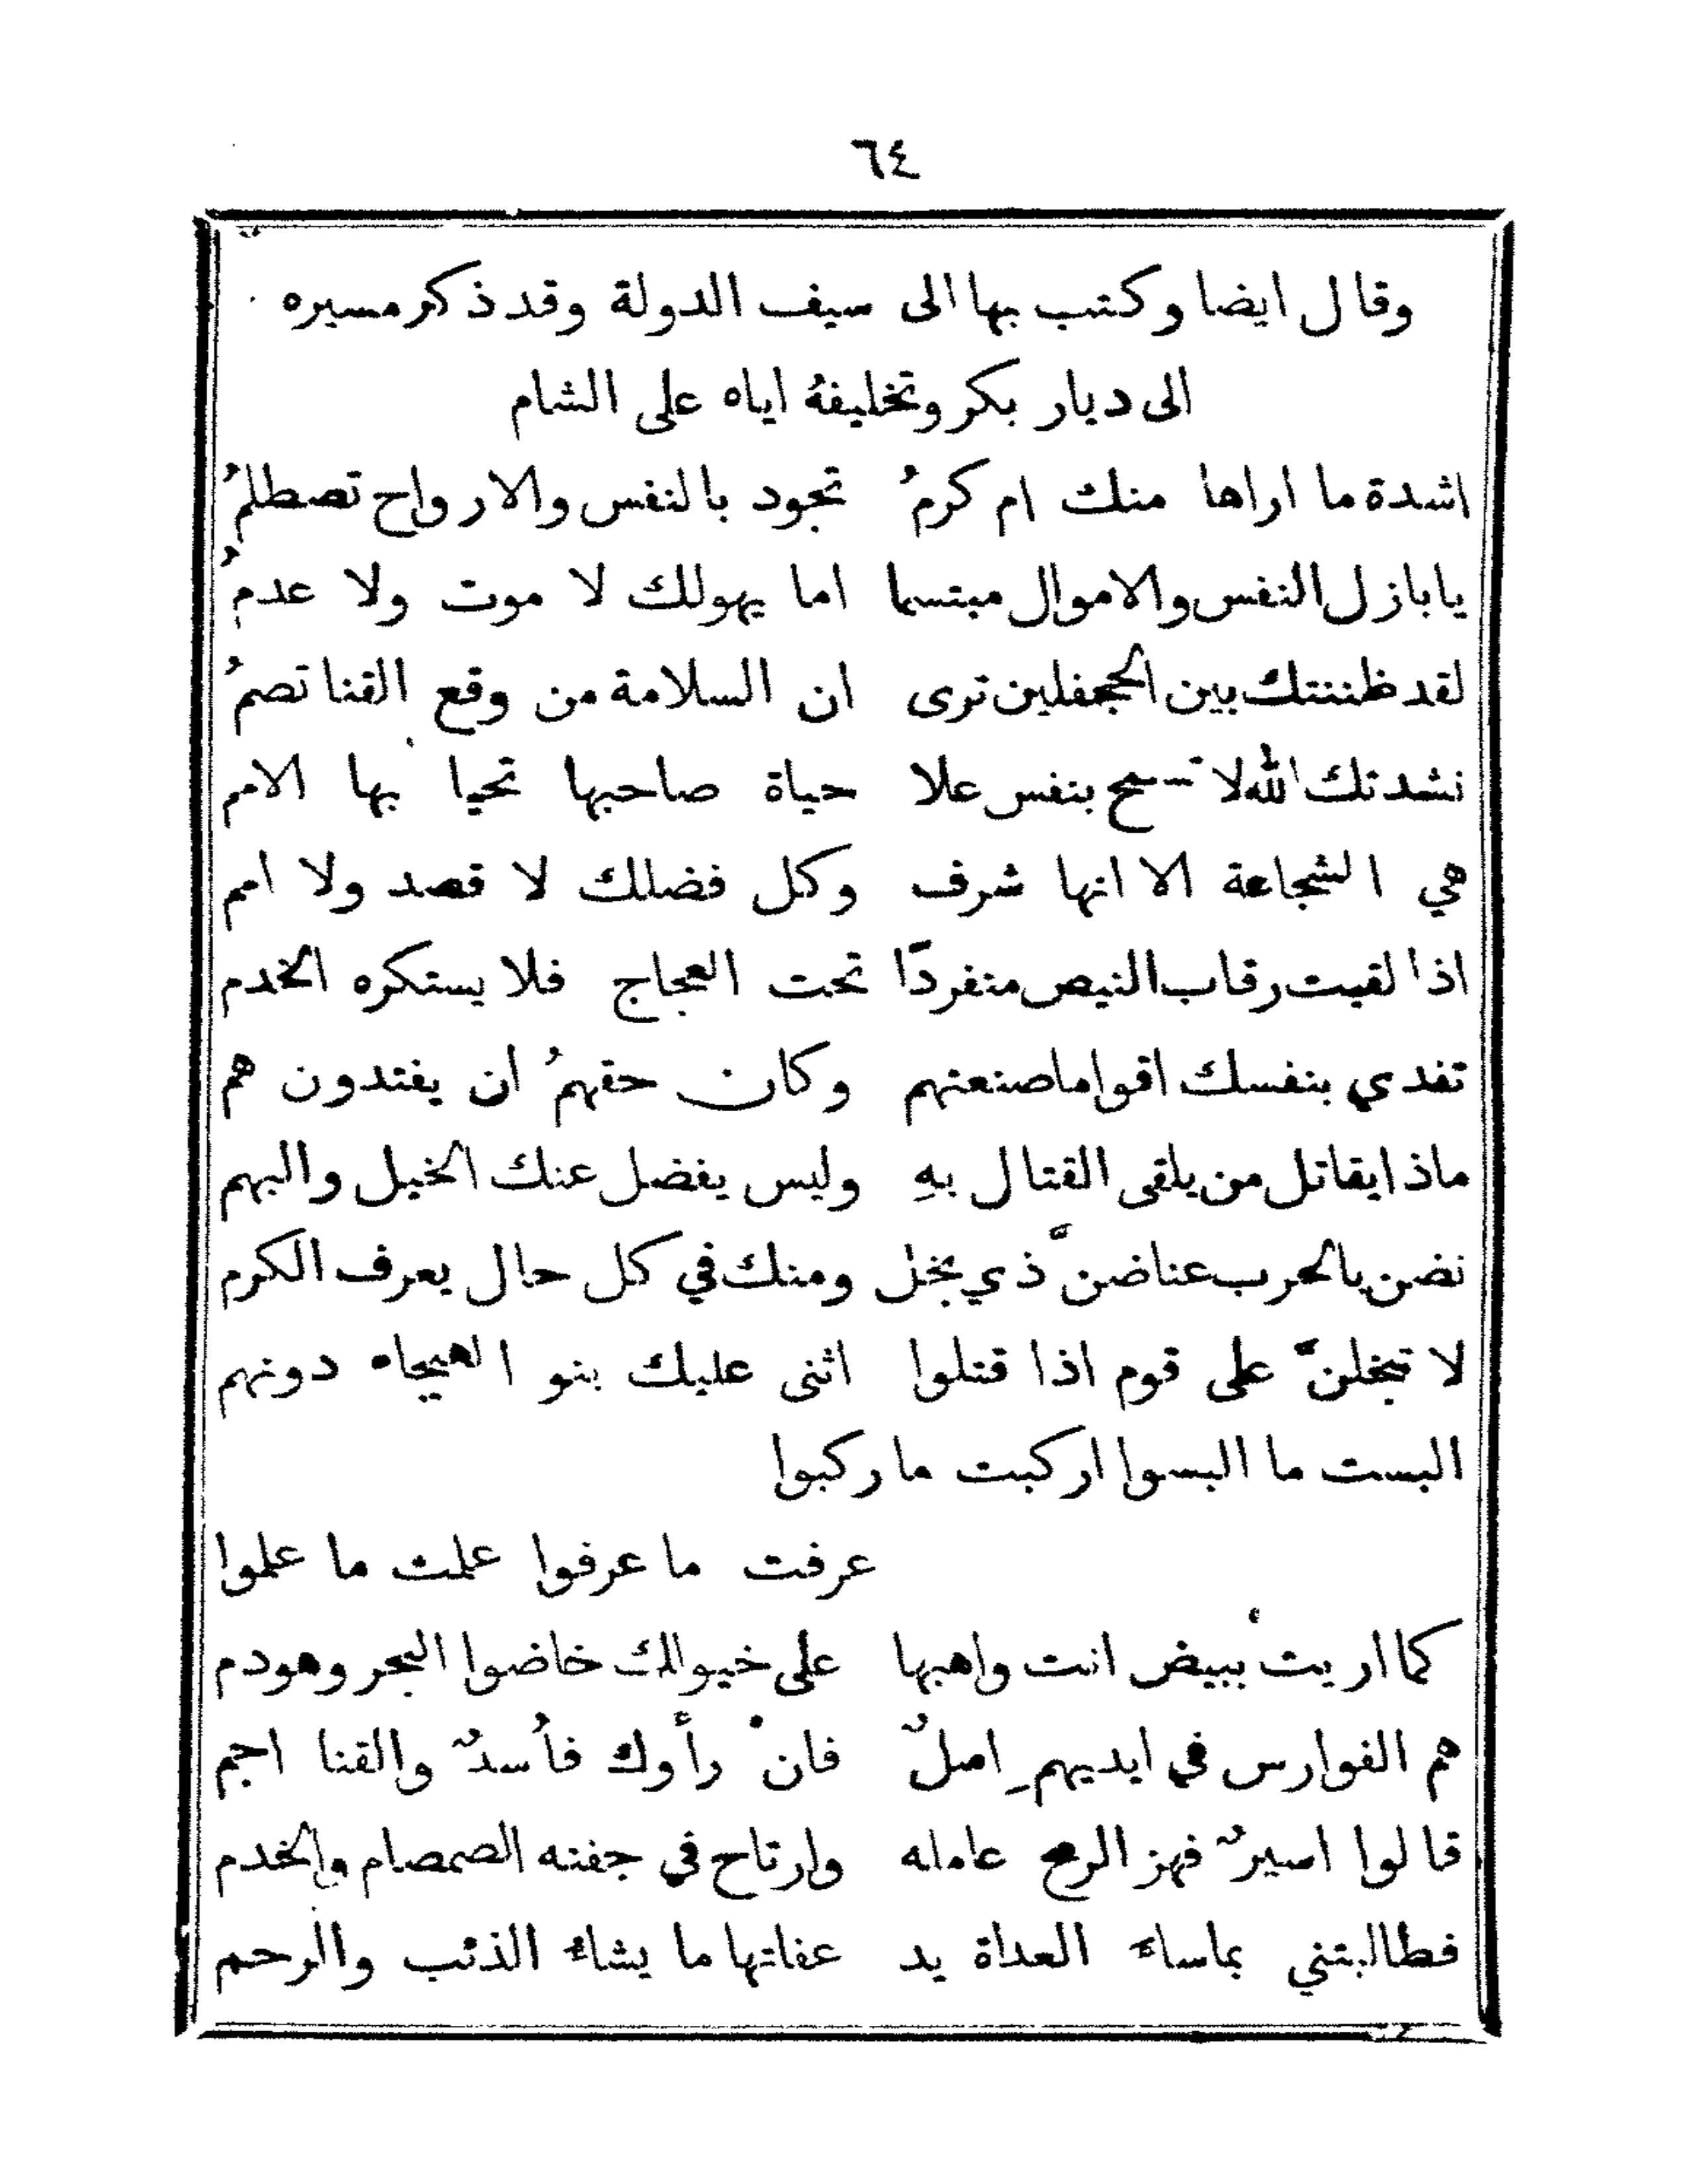 ٦٤
وقال ايضا وكتب بها الى سيف الدولة وقد ذكر مسيره
الى ديار بكر وتخليفهُ اياه على الشام
اشدة ما اراها منك ام كرمُ تجود بالنفس والارواح تصطلمُ
يا بازل النفس والاموال مبتسما اما يهولك لا موت ولا عدمُ
لقد ظننتك بين الجحفلين ترى ان السلامة من وقع القنا تصمُ
نشدتك الله لا تسمح بنفس علا حياة صاحبها تحيا بها الامم
هي الشجاعة الا انها شرف وكل فضلك لا قصد ولا امم
اذا لقيت رقاب النيص منفردًا تحت العجاج فلا يستكره الخدم
تفدي بنفسك اقواما صنعتهم وكان حقهمُ ان يفتدون هم
ماذا يقاتل من يلقى القتال بهِ وليس يفضل عنك الخيل والبهم
نضن بالحرب عنا ضنَّ ذي بخل ومنك في كل حال يعرف الكرم
لا تبخلنَّ على قوم اذا قتلوا اثنى عليك بنو الهيجاه دونهم
البست ما البسوا اركبت ما ركبوا
عرفت ما عرفوا علمت ما علموا
كما اريت ببيض انت واهبها على خيولك خاضوا البحر وهو دم
هم الفوارس في ايديهمِ اسلٌ فانْ رأَوك فأُسدٌ والقنا اجم
قالوا اسيرٌ فهز الرمح عامله وارتاح في جفنه الصمصام والخدم
فطالبتني بماساءَ العداة يد عفاتها ما يشاءُ الذئب والرحم